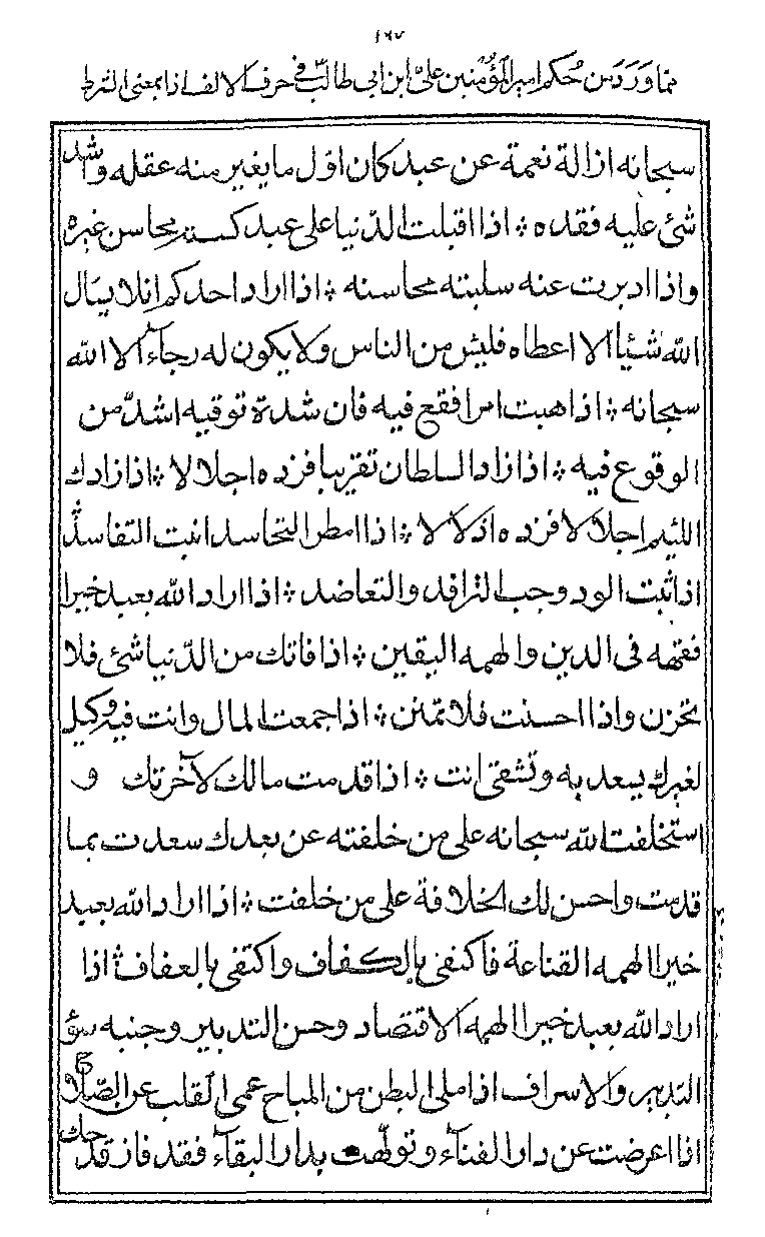 ١٤٧
مما وَرَدَ من حُكم امير المؤمنين علىّ ابن ابى طالب فى حرف الالف اذا بمعنى الشرط
سبحانه ازالة نعمة عن عبد كان اوّل ما يغير منه عقله واشد
شئ علیه فقده ؞ اذا اقبلت الدّنيا على عبد كسته محاسن غيره
واذا ادبرت عنه سلبته محاسنه ؞ اذا اراد احدكم ان لا يسال
الله شيئاً الا اعطاه فليئس من الناس ولا يكون له رجآء الا الله
سبحانه ؞ اذا هبت امرا فقع فيه فان شدة توقيه اشدّ من
الوقوع فيه ؞ اذا زاد السلطان تقريبا فزده اجلالا ؞ اذا زادك
اللئيم اجلالا فزده اذلالا ؞ اذا مطر التحاسد انبت التفاسد ؞
اذا ثبت الود وجب الترافد والتعاضد ؞ اذا اراد الله بعبد خيرا
فقهه فى الدين والهمه اليقين ؞ اذا فاتك من الدّنيا شئ فلا
تحزن واذا احسنت فلا تمنن ؞ اذا جمعت المال وانت فيه وكيل
لغيرك يسعد به وتشقى انت ؞ اذا قدمت مالك لآخرتك و
استخلفت الله سبحانه على من خلفته عن بعدك سعدت بما
قدمت واحسن لك الخلافة على من خلفت ؞ اذا اراد الله بعبد
خيرا الهمه القناعة فاكتفى بالكفاف واكتفى بالعفاف ؞ اذا
اراد الله بعبد خيرا الهمه الاقتصاد وحسن التدبير وجنبه سوء
التدبير والاسراف اذا ملى البطن من المباح عمى القلب عن الصّلاح
اذا اعرضت عن دار الفنآء وتولّهت بدار البقآء فقد فاز قدحك